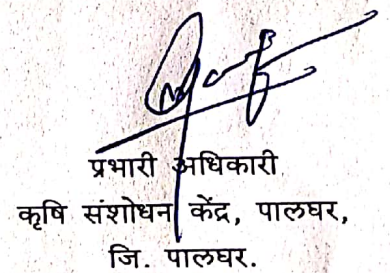 प्रभारी अधिकारी
कृषि संशोधन केंद्र, पालघर,
जि. पालघर.